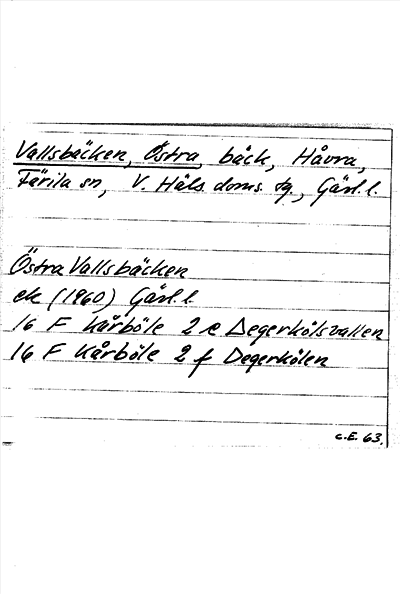 Vallsbäcken, Östra, bäck, Håvra,
Färila sn, V. Häls. doms. tg., Gävl. l.
Östra Vallsbäcken
ek (1960) Gävl. l.
16 F Kårböle 2 e Degerkölsvallen
16 F Kårböle 2 f Degerkölen
C.E. 63.